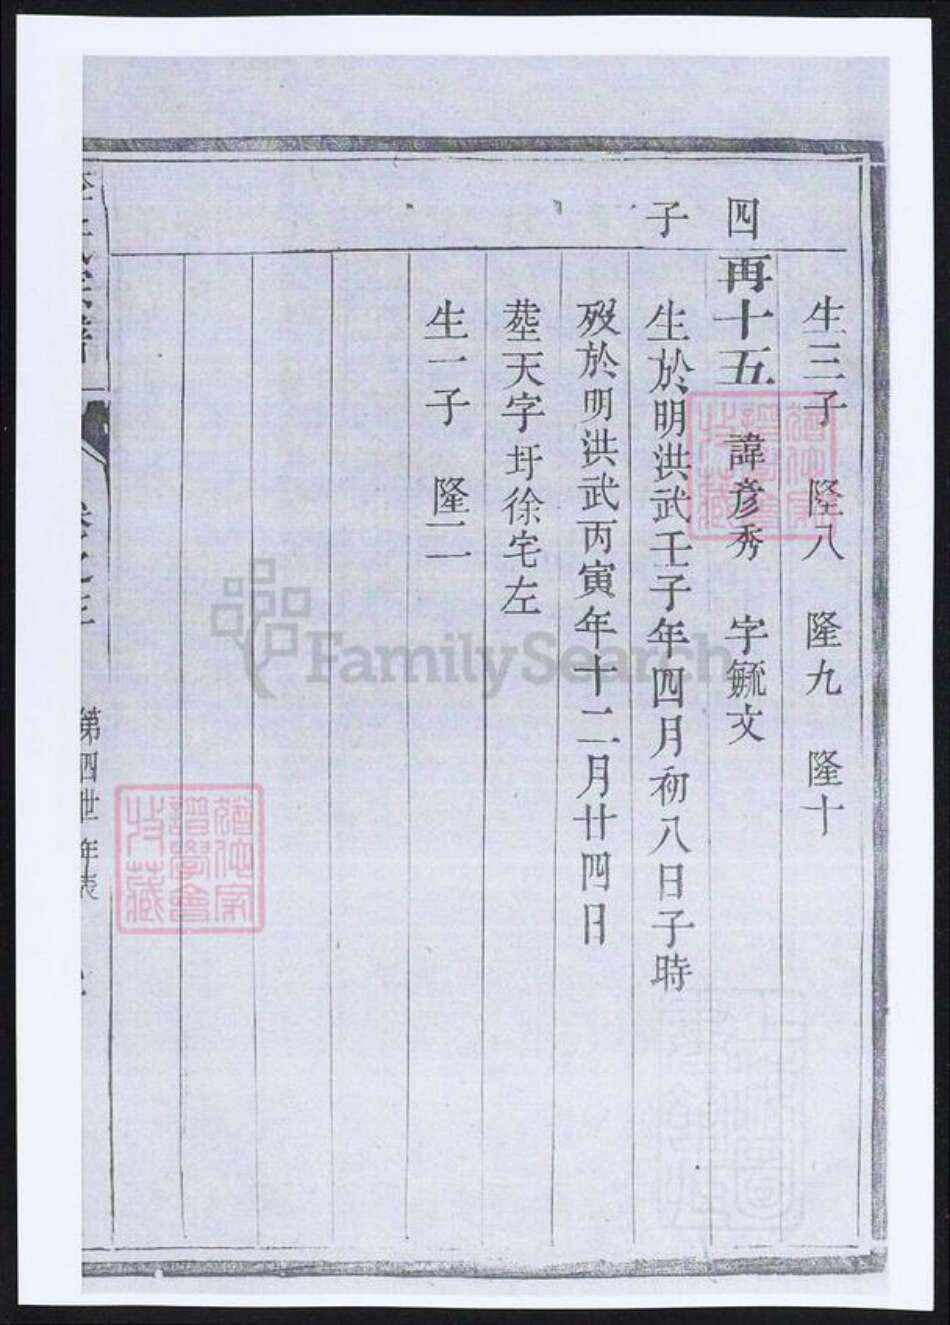 生三子 隆八 隆九 隆十
四子
再十五 諱彦秀 字毓文
生於明洪武壬子年四月初八日子時
歿於明洪武丙寅年十二月廿四日
葬天字圩徐宅左
生一子 隆二
卷之三
第四世年表
FamilySearch
譜學會
收藏
譜學會
收藏